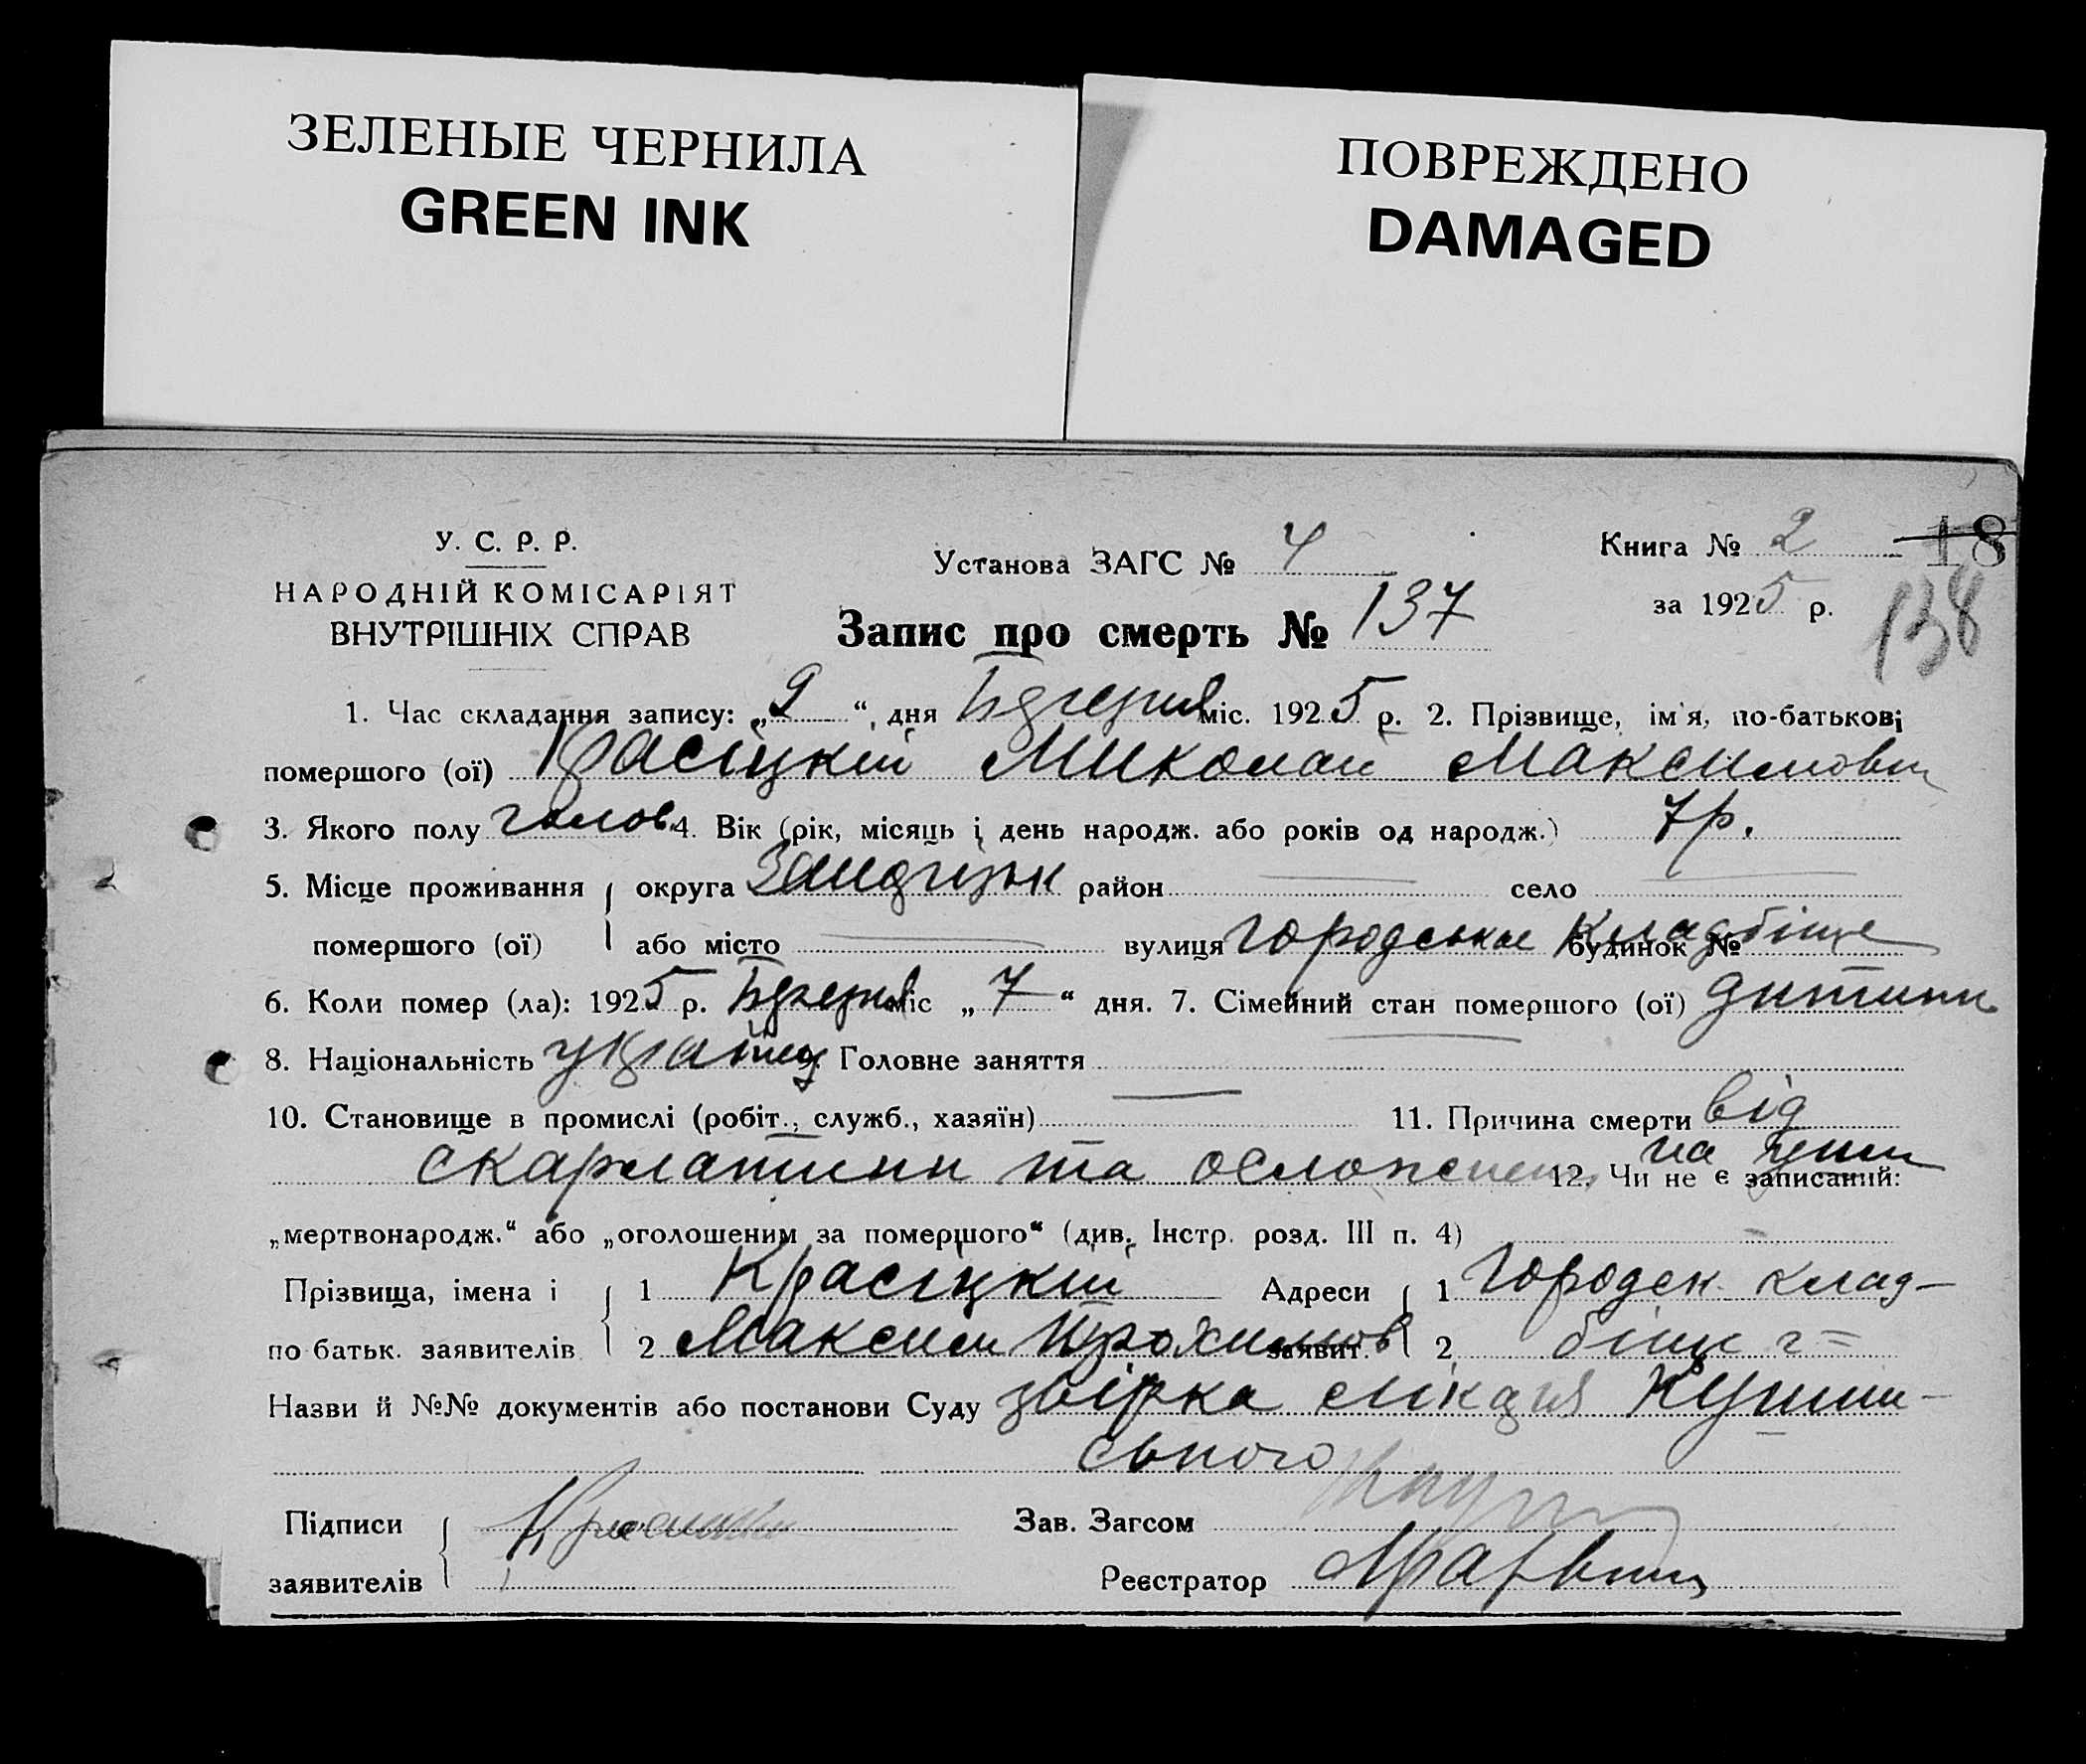 ЗЕЛЕНЫЕ ЧЕРНИЛА
GREEN INK
ПОВРЕЖДЕНО
DAMAGED
У. С. Р. Р.
НАРОДНІЙ КОМІСАРІЯТ
ВНУТРІШНІХ СПРАВ
Установа ЗАГС № 4
Запис про смерть № 137
Книга № 2
за 1925 р.
18
138
1. Час складання запису: „9“, дня Березня міс. 1925 р. 2. Прізвище, ім'я, по-батькові
помершого (ої) Красіцкій Миколай Максимович
3. Якого полу чолов. 4. Вік (рік, місяць і день народж. або років од народж.) 7р.
5. Місце проживання округа район — село —
помершого (ої) або місто — вулиця Городське Кладбіще будинок №
6. Коли помер (ла): 1925 р. Березня міс „7“ дня. 7. Сімейний стан помершого (ої) дитина
8. Національність україн. 9. Головне заняття —
10. Становище в промислі (робіт., служб., хазяїн) — 11. Причина смерти від
скарлатини та осложнен. на 12. Чи не є записаний:
„мертвонародж.“ або „оголошеним за помершого“ (див. Інстр. розд. III п. 4) -
Прізвища, імена і 1 Красіцкій Адреси 1 Городск. клад-
по батьк. заявителів 2 Максим Трохимов заявит. 2 біще
Назви й №№ документів або постанови Суду лікаря
ського
Підписи Зав. Загсом
заявителів Реєстратор